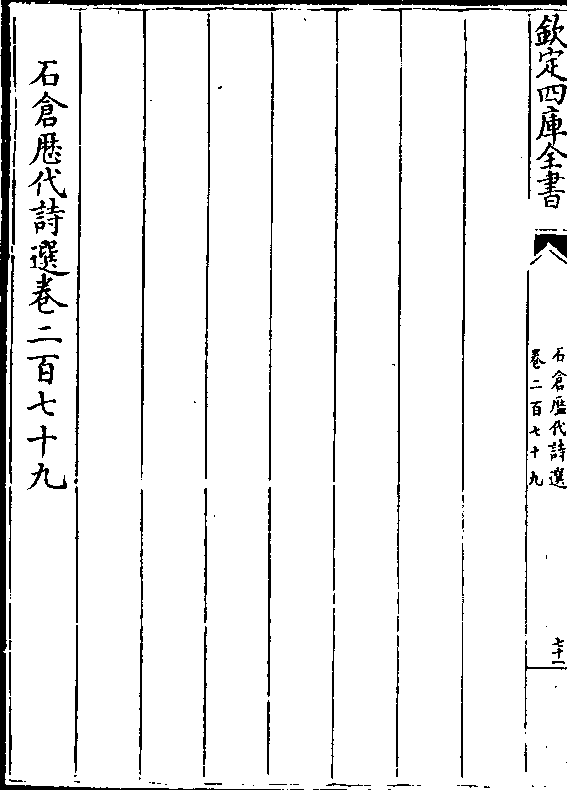 欽定四庫全書
石倉歷代詩選
卷二百七十九
七十一
石倉歷代詩選卷二百七十九